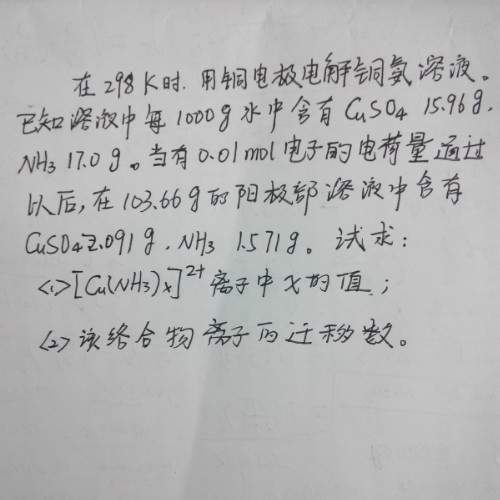 在298K时.用铜电极电解铜氨溶液。
已知溶液中每1000g水中含有CuSO4 15.96g,
NH3 17.0g。当有0.01mol电子的电荷量通过
以后,在103.66g的阳极部溶液中含有
CuSO4 2.091g.NH3 1.571g。试求:
<1>[Cu(NH3)x]2+离子中x的值;
<2>该络合物离子的迁移数。